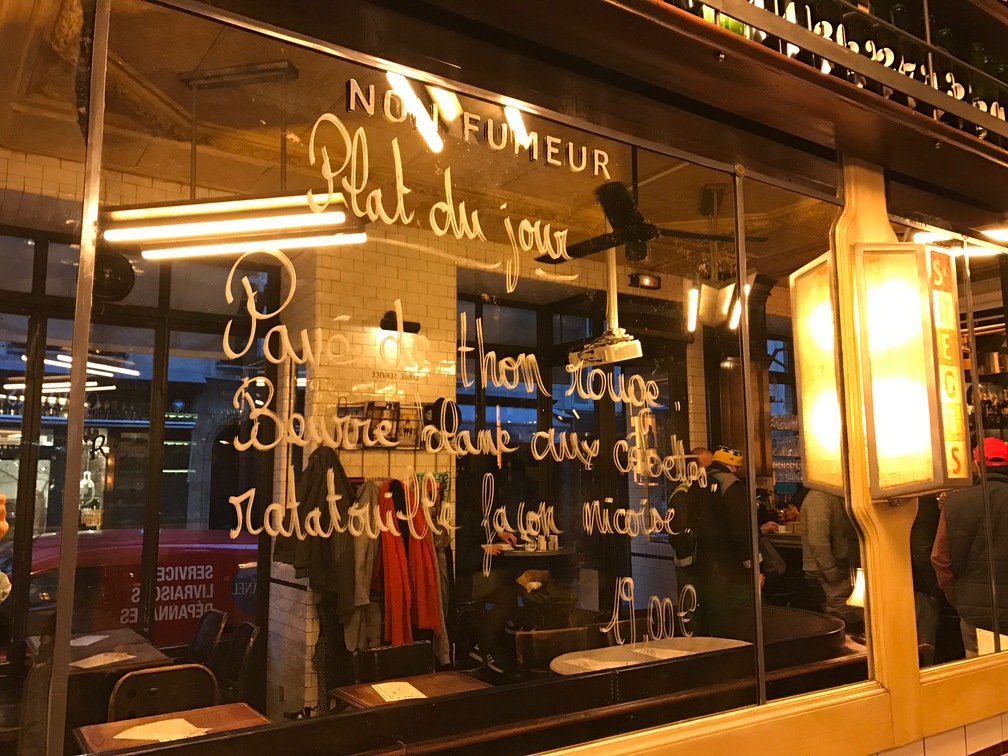 NON FUMEUR
Plat du jour
Pavé de thon rouge
Beurre blanc aux
ratatouille façon niçoise
19,00€
SERVICE
LIVRAISONS
DÉPANNAGES